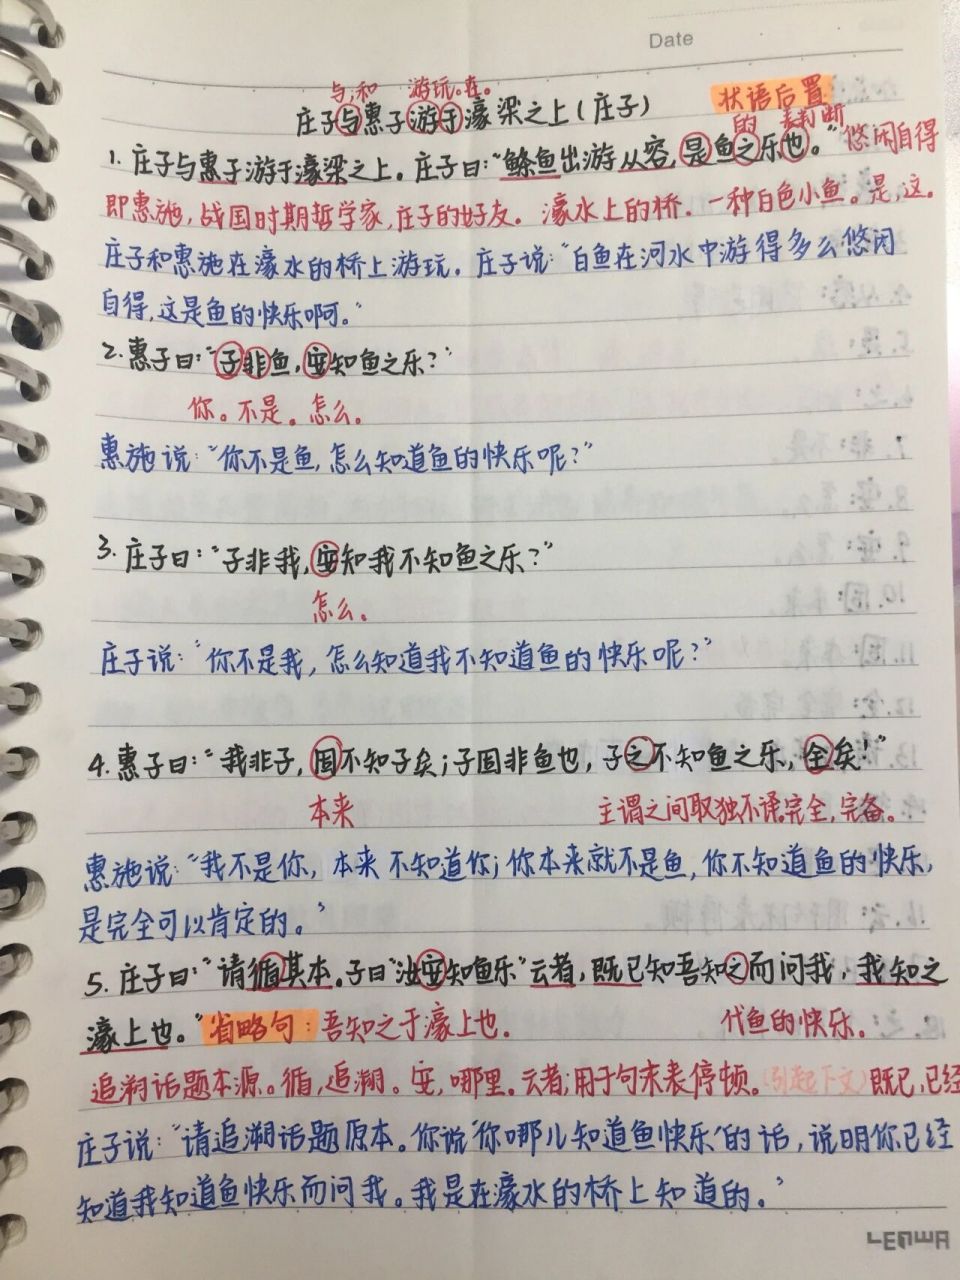 Date
与,和 游玩。在。
庄子与惠子游于濠梁之上(庄子) 状语后置
的 表判断
1. 庄子与惠子游于濠梁之上。庄子曰:“鲦鱼出游从容,是鱼之乐也。” 悠闲自得
即惠施,战国时期哲学家,庄子的好友。 濠水上的桥. 一种白色小鱼。是,这。
庄子和惠施在濠水的桥上游玩。庄子说:“白鱼在河水中游得多么悠闲
自得,这是鱼的快乐啊。”
2. 惠子曰:“子非鱼,安知鱼之乐?”
你。不是。怎么。
惠施说:“你不是鱼,怎么知道鱼的快乐呢?”
3. 庄子曰:“子非我,安知我不知鱼之乐?”
怎么。
庄子说:“你不是我,怎么知道我不知道鱼的快乐呢?”
4. 惠子曰:“我非子,固不知子矣;子固非鱼也,子之不知鱼之乐,全矣!”
本来 主谓之间取独不译.完全,完备。
惠施说:“我不是你,本来不知道你;你本来就不是鱼,你不知道鱼的快乐,
是完全可以肯定的。”
5. 庄子曰:“请循其本.子曰“汝安知鱼乐”云者,既已知吾知之而问我,我知之
濠上也。” 省略句: 吾知之于濠上也. 代鱼的快乐.
追溯话题本源。循,追溯。安,哪里。云者;用于句末表停顿。(引起下文)既已,已经
庄子说:“请追溯话题原本。你说‘你哪儿知道鱼快乐’的话,说明你已经
知道我知道鱼快乐而问我。我是在濠水的桥上知道的。”
LENWA